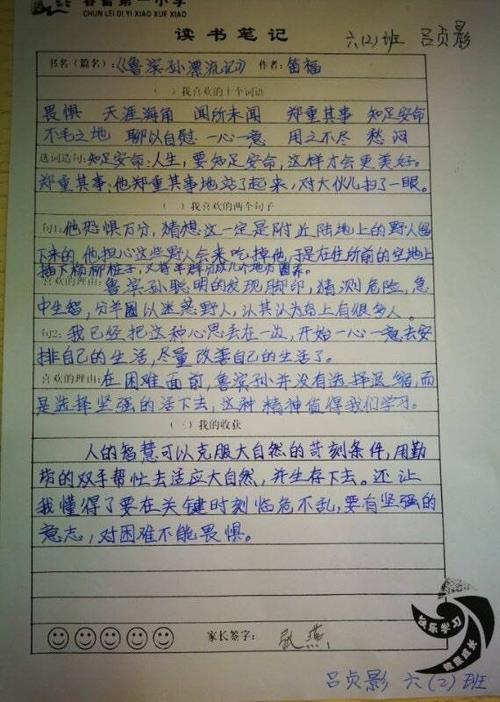 第一小学
CHUN LEI DI YI XIAO XUE XIAO
读书笔记 六(2)班 吕贞影
书名(篇名):《鲁滨孙漂流记》 作者:笛福
(一)我喜欢的十个词语
畏惧 天涯海角 闻所未闻 郑重其事 知足安命
不毛之地 聊以自慰 一心一意 用之不尽 愁闷
选词造句:知足安命:人生,要知足安命,这样才会更美好。
郑重其事:他郑重其事地站了起来,对大伙儿扫了一眼。
(二)我喜欢的两个句子
句1:他恐惧万分,猜想这一定是附近陆地上的野人留
下来的,他担心这些野人会来吃掉他,于是在住所前的空地上
插下杨柳桩子,又将羊群分成几个地方圈养。
喜欢的理由:鲁滨孙聪明的发现脚印,猜测危险,急
中生智,分羊圈以迷惑野人,认其认为岛上有很多人。
句2:我已经把这种心思丢在一边,开始一心一意去安
排自己的生活,尽量改善自己的生活了。
喜欢的理由:在困难面前,鲁滨孙并没有选择退缩,而
是选择坚强的活下去,这种精神值得我们学习。
(三)我的收获
人的智慧可以克服大自然的苛刻条件,用勤
劳的双手帮忙去适应大自然,并生存下去。还让
我懂得了要在关键时刻临危不乱,要有坚强的
意志,对困难不能畏惧。
家长签字: 张燕
快乐学习
健康成长
吕贞影 六(2)班